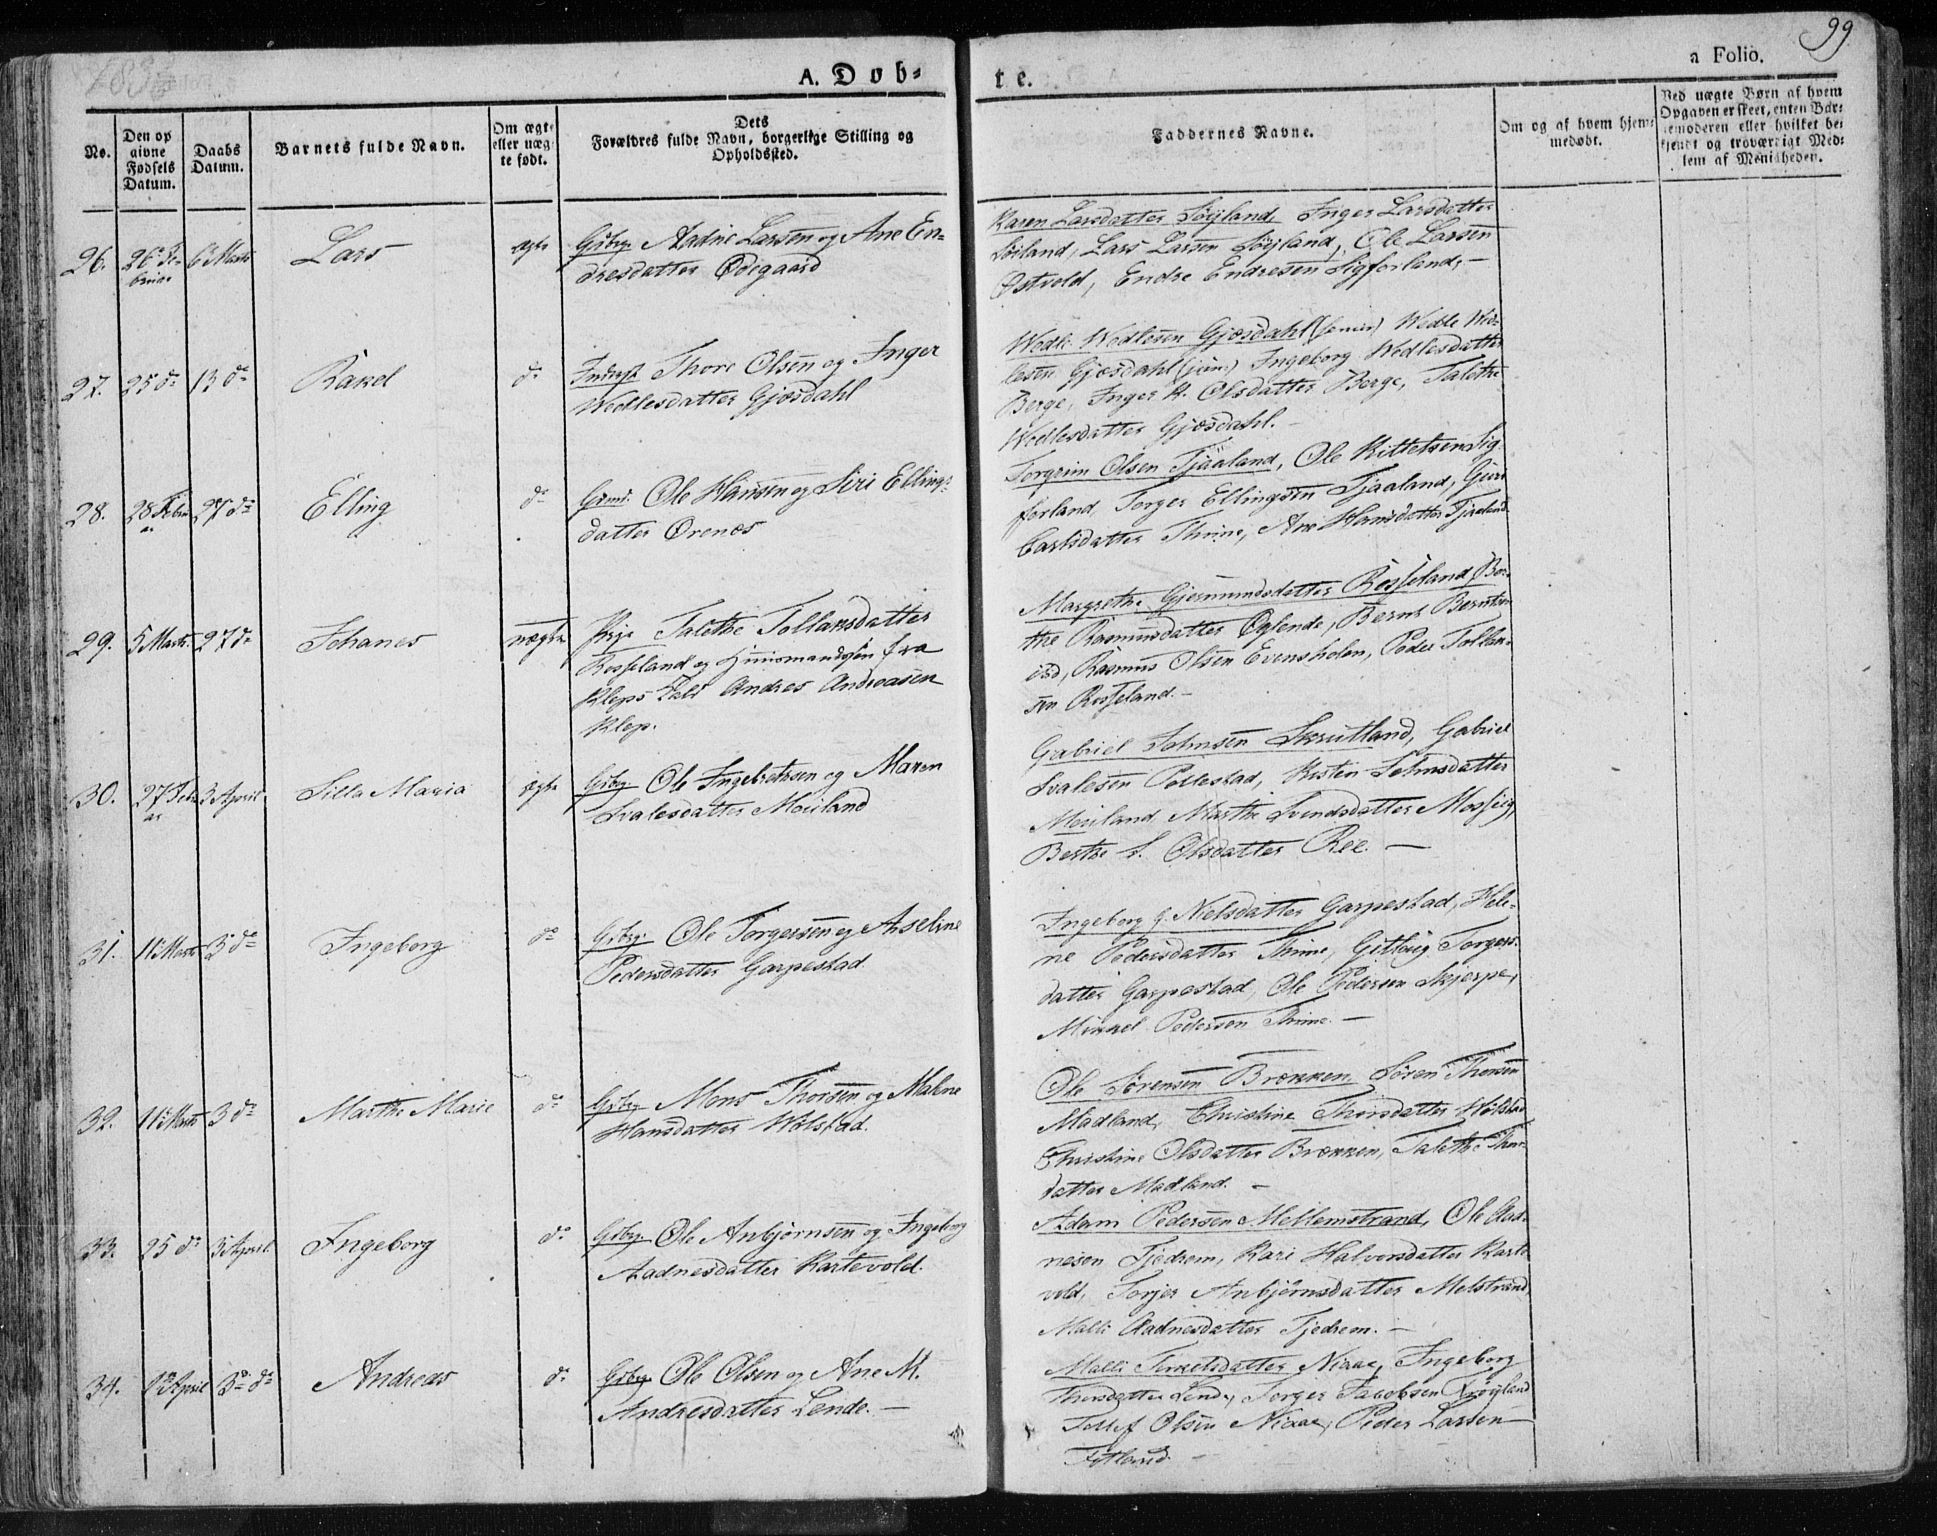 99
A. Døb-
te.
a Folio.
No.
Den op
givne
Fødsels
Datum.
Daabs
Datum.
Barnets fulde Navn.
Om ægte
eller uæg-
te født.
Dets
Forældres fulde Navn, borgerlige Stilling og
Opholdssted.
Faddernes Navne.
Om og af hvem hjem-
medøbt.
Ved uægte Børn af hvem
Opgaven er skeet, enten Bar-
nemoderen eller hvilket be-
kjendt og troværdigt Med-
lem af Menigheden.
26. 26de Fe-
bruar
6 Marts
Lars
ægte
Gbrg. Aadne Larsen og Ane En-
dresdatter Ødegaard
Karen Larsdatter Søyland, Inger Larsdatter
Søiland, Lars Larsen Søyland, Ole Larsen
Østvold, Endre Endresen Sigforland,-
27. 25 do 13 do
Rakel
do
Inderst Thore Olsen og Inger
Wedlesdatter Gjøsdahl
Wedle Wedlesen Gjøsdahl (senior) Wedle Wed-
lesen Gjøsdahl (jun:) Ingeborg Wedlesdatter
Berge, Inger K. Olsdatter Berge, Talethe
Wedlesdatter Gjøsdahl.
28. 28 Febru
ar
27 do
Elling
do
Ole Hansen og Siri Ellings-
datter Ørenes
Torgrim Olsen Tjaaland, Ole Kittelsen Sig-
forland, Torger Ellingsen Tjaaland, Guri
Carlsdatter Thime, Ane Hansdatter Tjaaland
29. 5 Marts 27 do
Johanes
uægte
Pige Talethe Tollaksdatter
Rosseland og Huusmandssøn fra
Klep Andres Andreasen
Klep.
Margrethe Gjermundsdatter Rosseland, Ber-
the Rasmusdatter Øglende, Bernt Berntsen
Rasmus Olsen Evensholen, Peder Tollak-
sen Rosseland.-
30. 27 Febr
ar
3 April
Silla Maria
ægte
Gbrg. Ole Ingebretsen og Maren
Svalesdatter Mouland
Gabriel Johnsen Skrutland, Gabriel
Svalesen Pollestad, Kisten Johnsdatter
Mouland, Marthe Svendsdatter Mossig,
Berthe S. Olsdatter Ree. -
31. 11 Marts 3 do
Ingeborg
do
Gbrg. Ole Torgersen og Aseline
Pedersdatter Garpestad.
Ingeborg G. Nielsdatter Garpestad, Hele-
ne Pedersdatter Thime, Gitlaug Torgers-
datter Garpestad, Ole Pedersen Skjerpe,
Mikkel Pedersen Thime. -
32. 11 Marts 3 do
Marthe Marie
do
Gbrg. Mons Thorsen og Malene
Hansdatter Hølstad.
Ole Sørensen Brækken, Søren Thorsen
Madland, Christine Thorsdatter Hølstad
Christine Olsdatter Brækken, Talethe Thors-
datter Madland. -
33. 25 do 3 April
Ingeborg
do
Gbrg. Ole Anbjørnsen og Ingeborg
Aadnesdatter Kartevold.
Adam Pedersen Mellemstrand, Ole Aad-
nesen Tjedrem, Kari Halvorsdatter Karte-
vold, Torjer Anbjørnsdatter Melstrand,
Malli Aadnesdatter Tjedrem. -
34. 1 April 3 do
Andreas
do
Gbrg. Ole Olsen og Ane M.
Andresdatter Lende. -
Malli Torkelsdatter Niaae, Ingeborg
Thorsdatter Lende, Torger Jacobsen Frøyland
Tollef Olsen Niaae, Peder Larsen
Fotland -